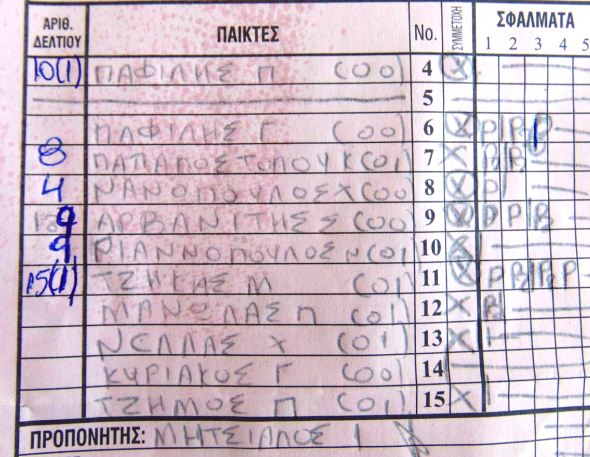 ΑΡΙΘ. ΔΕΛΤΙΟΥ ΠΑΙΚΤΕΣ No. ΣΥΜΜΕΤΟΧΗ ΣΦΑΛΜΑΤΑ
1 2 3 4 5
10(1) ΠΑΦΙΛΗΣ Π (00) 4 X
5
ΠΑΦΙΛΗΣ Γ (00) 6 X P P P
8 ΠΑΠΑΠΟΣΤΟΠΟΥ Κ (01) 7 X P2 P2
4 ΝΑΝΟΠΟΥΛΟΣ Χ (00) 8 X P
9 ΑΡΒΑΝΙΤΗΣ Σ (00) 9 X P P P2
9 ΓΙΑΝΝΟΠΟΥΛΟΣ Ν (01) 10 X
15(1) ΤΖΗΚΗΣ Μ (01) 11 X P P2 P2 P
ΜΑΝΩΛΑΣ Π (01) 12 X P2
ΝΕΛΛΑΣ Χ (01) 13 X
ΚΥΡΙΑΚΟΣ Γ (00) 14
ΤΖΗΜΟΣ Π (01) 15 X
ΠΡΟΠΟΝΗΤΗΣ: ΜΗΤΣΙΑΛΟΣ Ι